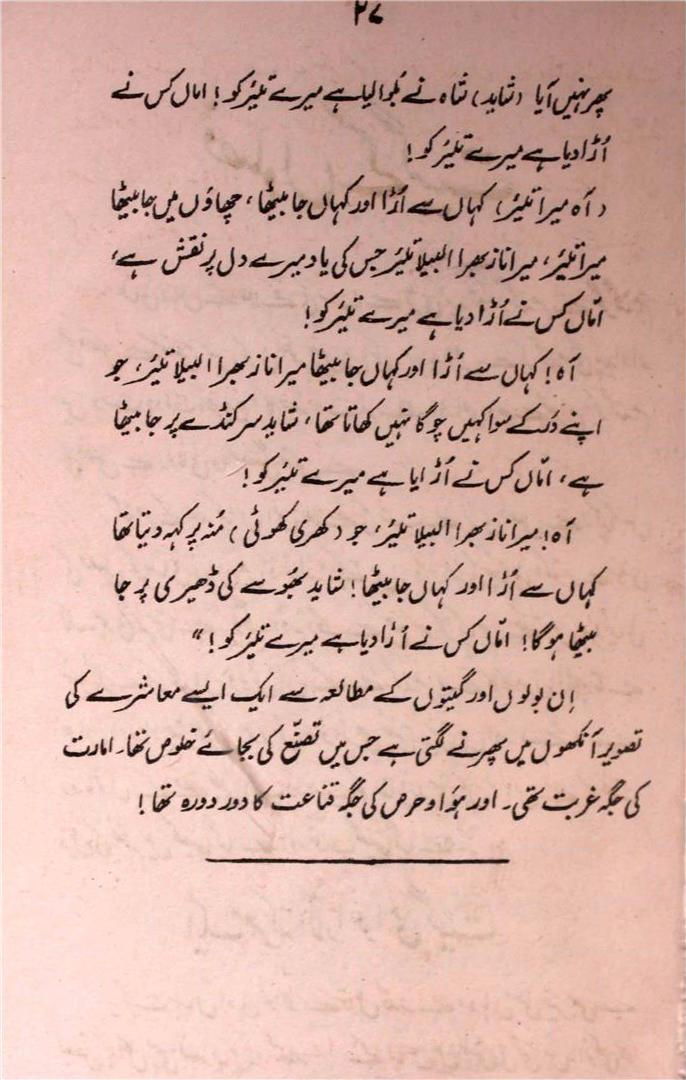 ۲۷
پھر نہیں آیا (شاید) شاہ نے بُلوا لیا ہے میرے تلیئر کو! اماں کس نے
اُڑا دیا ہے میرے تلیئر کو!
(آہ میرا تلیئر) کہاں سے اُڑا اور کہاں جا بیٹھا، چھاؤں میں جا بیٹھا
میرا تلیئر، میرا ناز بھرا البیلا تلیئر جس کی یاد میرے دل پر نقش ہے،
امّاں کس نے اُڑا دیا ہے میرے تلیئر کو!
آہ! کہاں سے اُڑا اور کہاں جا بیٹھا میرا ناز بھرا البیلا تلیئر، جو
اپنے در کے سوا کہیں چوگا نہیں کھاتا تھا، شاید سرکنڈے پر جا بیٹھا
ہے، امّاں کس نے اُڑایا ہے میرے تلیئر کو!
آہ! میرا ناز بھرا البیلا تلیئر، جو (کھری کھوئی) مُنہ پر کہہ دیتا تھا
کہاں سے اُڑا اور کہاں جا بیٹھا! شاید بھُوسے کی ڈھیری پر جا
بیٹھا ہوگا! امّاں کس نے اُڑا دیا ہے میرے تلیئر کو!“
اِن بولوں اور گیتوں کے مطالعہ سے ایک ایسے معاشرے کی
تصویر آنکھوں میں پھرنے لگتی ہے جس میں تصنّع کی بجائے خلوص تھا۔ امارت
کی جگہ غربت تھی۔ اور ہَوا و حرص کی جگہ قناعت کا دور دورہ تھا!